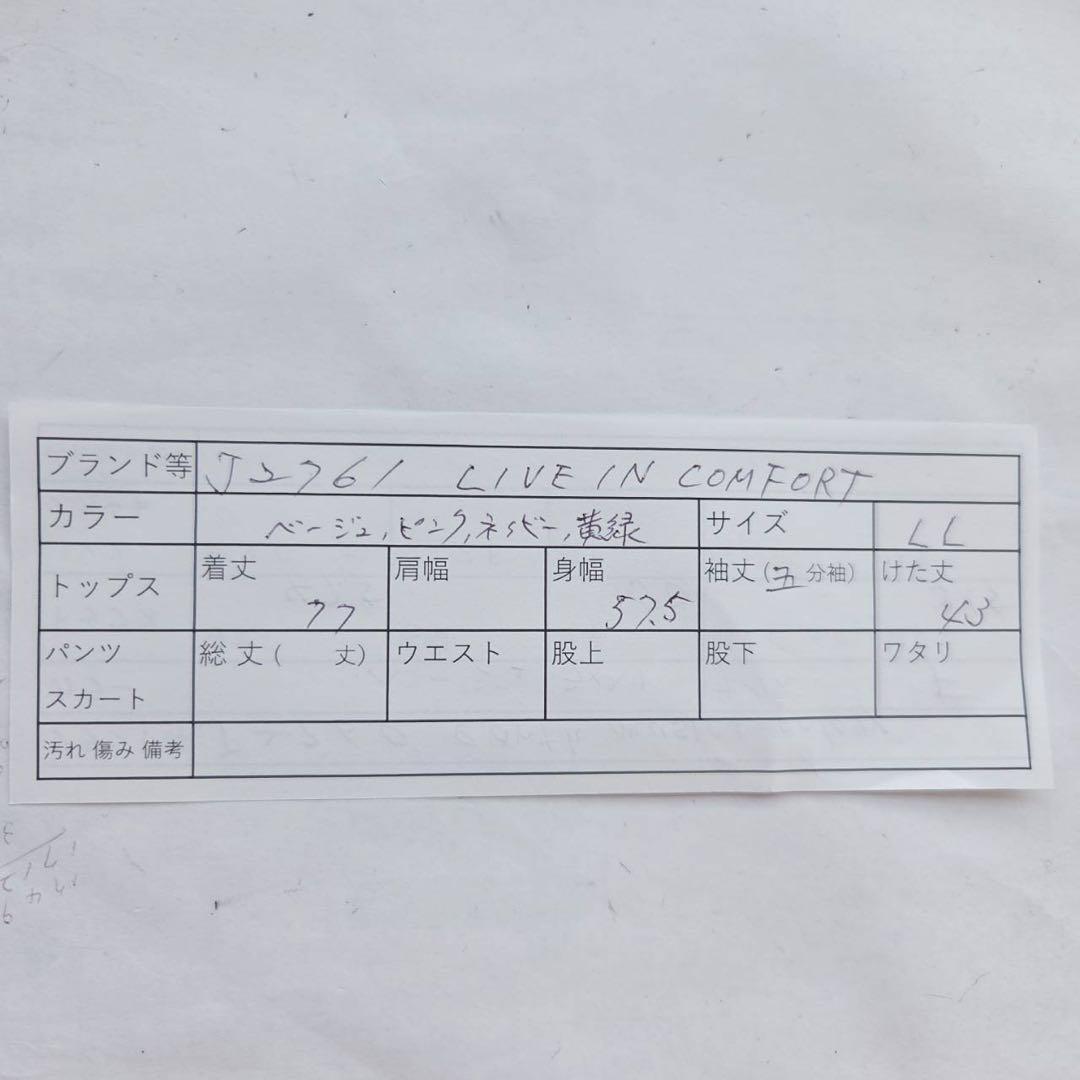 ブランド等 J2761 LIVE IN COMFORT
カラー ベージュ,ピンク,ネイビー,黄緑 サイズ LL
トップス 着丈 77 肩幅 身幅 57.5 袖丈(五分袖) けた丈 43
パンツ スカート 総丈( 丈) ウエスト 股上 股下 ワタリ
汚れ 傷み 備考